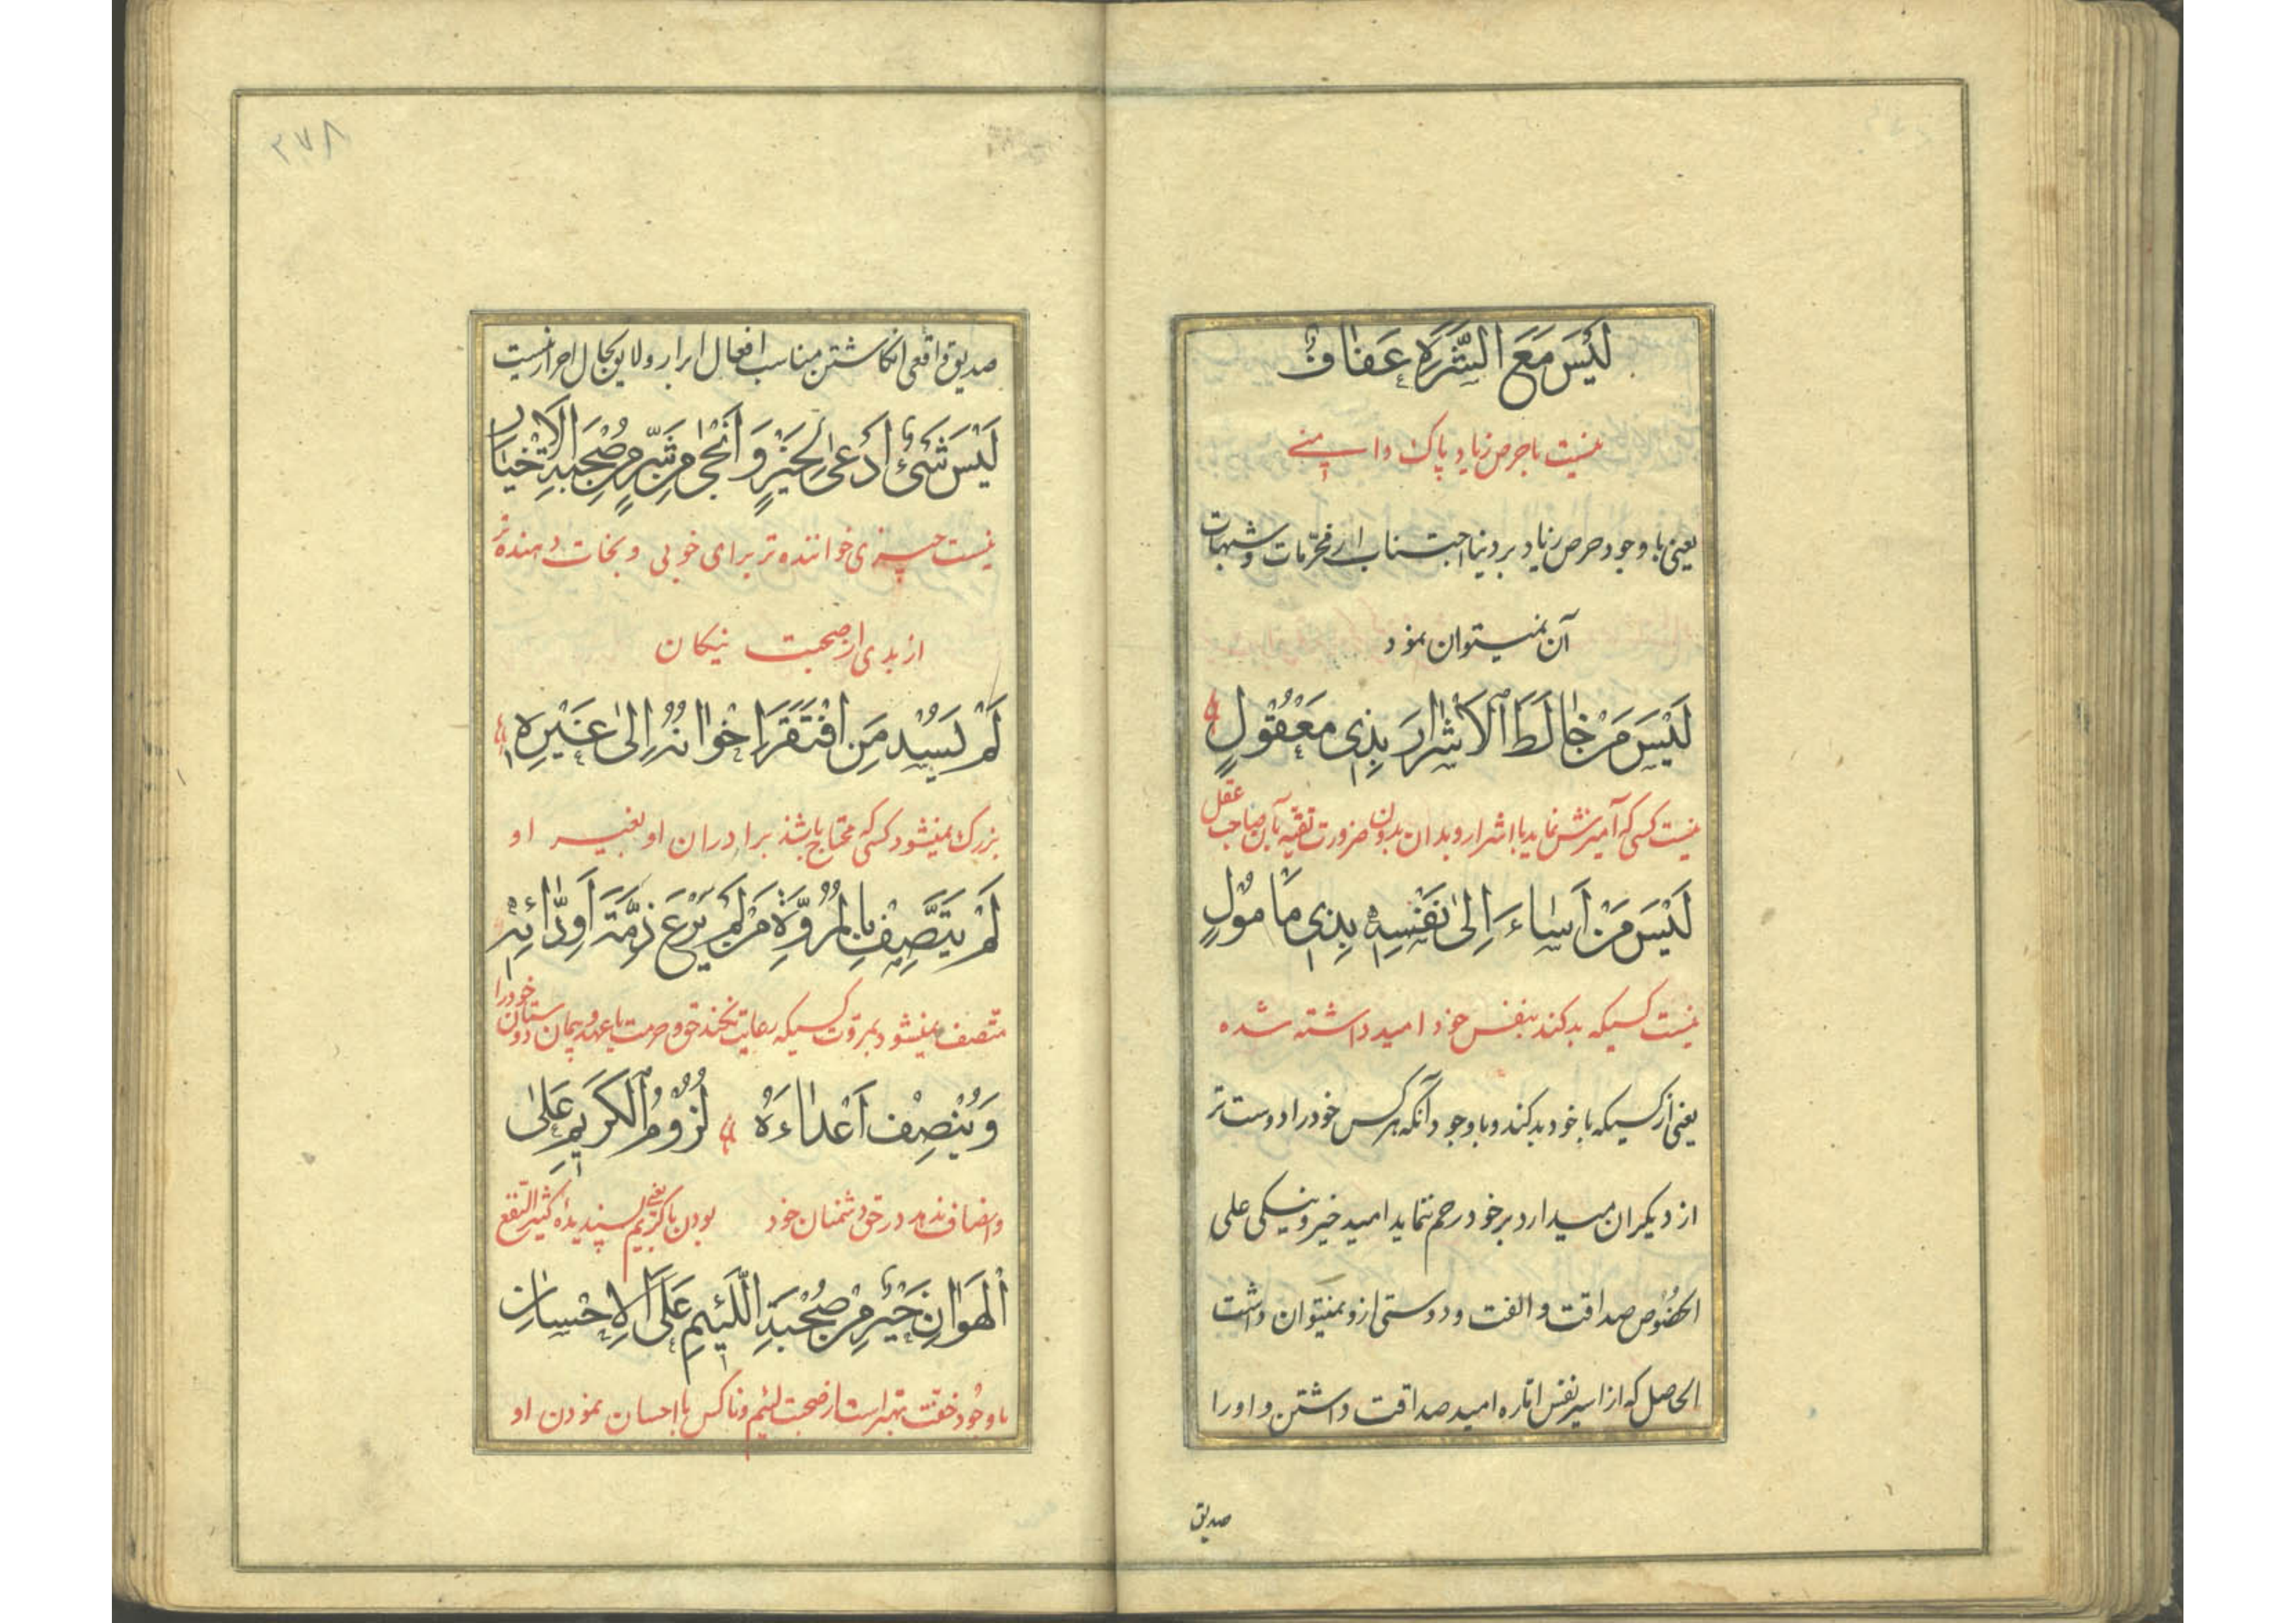 لَيْسَ مَعَ الشَّرَهِ عَفَافٌ
نیست با حرص زیاد پاک دامنی
یعنی با وجود حرص زیاد بر دنیا اجتناب از محرّمات و شبهات
آن نمیتوان نمود
لَيْسَ مَنْ خَالَطَ الْأَشْرَارَ بِذِي مَعْقُولٍ
نیست کسی که آمیزش نماید با اشرار و بدان بدون ضرورت تقیه بآن صاحب عقل
لَيْسَ مَنْ أَسَاءَ إِلَى نَفْسِهِ بِذِي مَأْمُولٍ
نیست کسیکه بد کند بنفس خود امید داشته شده
یعنی از کسیکه با خود بد کند و با وجود آنکه هر کس خود را دوست تر
از دیکران میدارد بر خود رحم ننماید امید خیر و نیکی علی
الخصوص صداقت و الفت و دوستی ازو نمیتوان داشت
الحاصل که از اسیر نفس امّاره امید صداقت داشتن و او را
صدیق
۳۷۸
صدیق واقعی انکاشتن مناسب افعال ابرار و لایق بحال احرار نیست
لَيْسَ شَيْءٌ أَدْعَى لِخَيْرٍ وَأَنْجَى مِنْ شَرٍّ مِنْ صُحْبَةِ الْأَخْيَارِ
نیست چیزی خواننده تر برای خوبی و نجات دهنده تر
از بدی از صحبت نیکان
لَمْ يَسُدْ مَنِ افْتَقَرَ إِخْوَانُهُ إِلَى غَيْرِهِ
بزرک نمیشود کسی که محتاج باشند برادران او بغیر او
لَمْ يَتَّصِفْ بِالْمُرُوَّةِ مَنْ لَمْ يَرْعَ ذِمَّةَ أَوِدَّائِهِ
متّصف نمیشود بمروّت کسیکه رعایت نکند حق و حرمت یا عهد و پیمان دوستان خود را
وَيُنْصِفْ أَعْدَاءَهُ لُزُومُ الْكَرِيمِ عَلَى
و انصاف ندهد در حق دشمنان خود بودن با کریم یعنی پسندیدۀ کثیر النّفع
الْهَوَانِ خَيْرٌ مِنْ صُحْبَةِ اللَّئِيمِ عَلَى الْإِحْسَانِ
با وجود خفّت بهتر است از صحبت لئیم و ناکس با احسان نمودن او